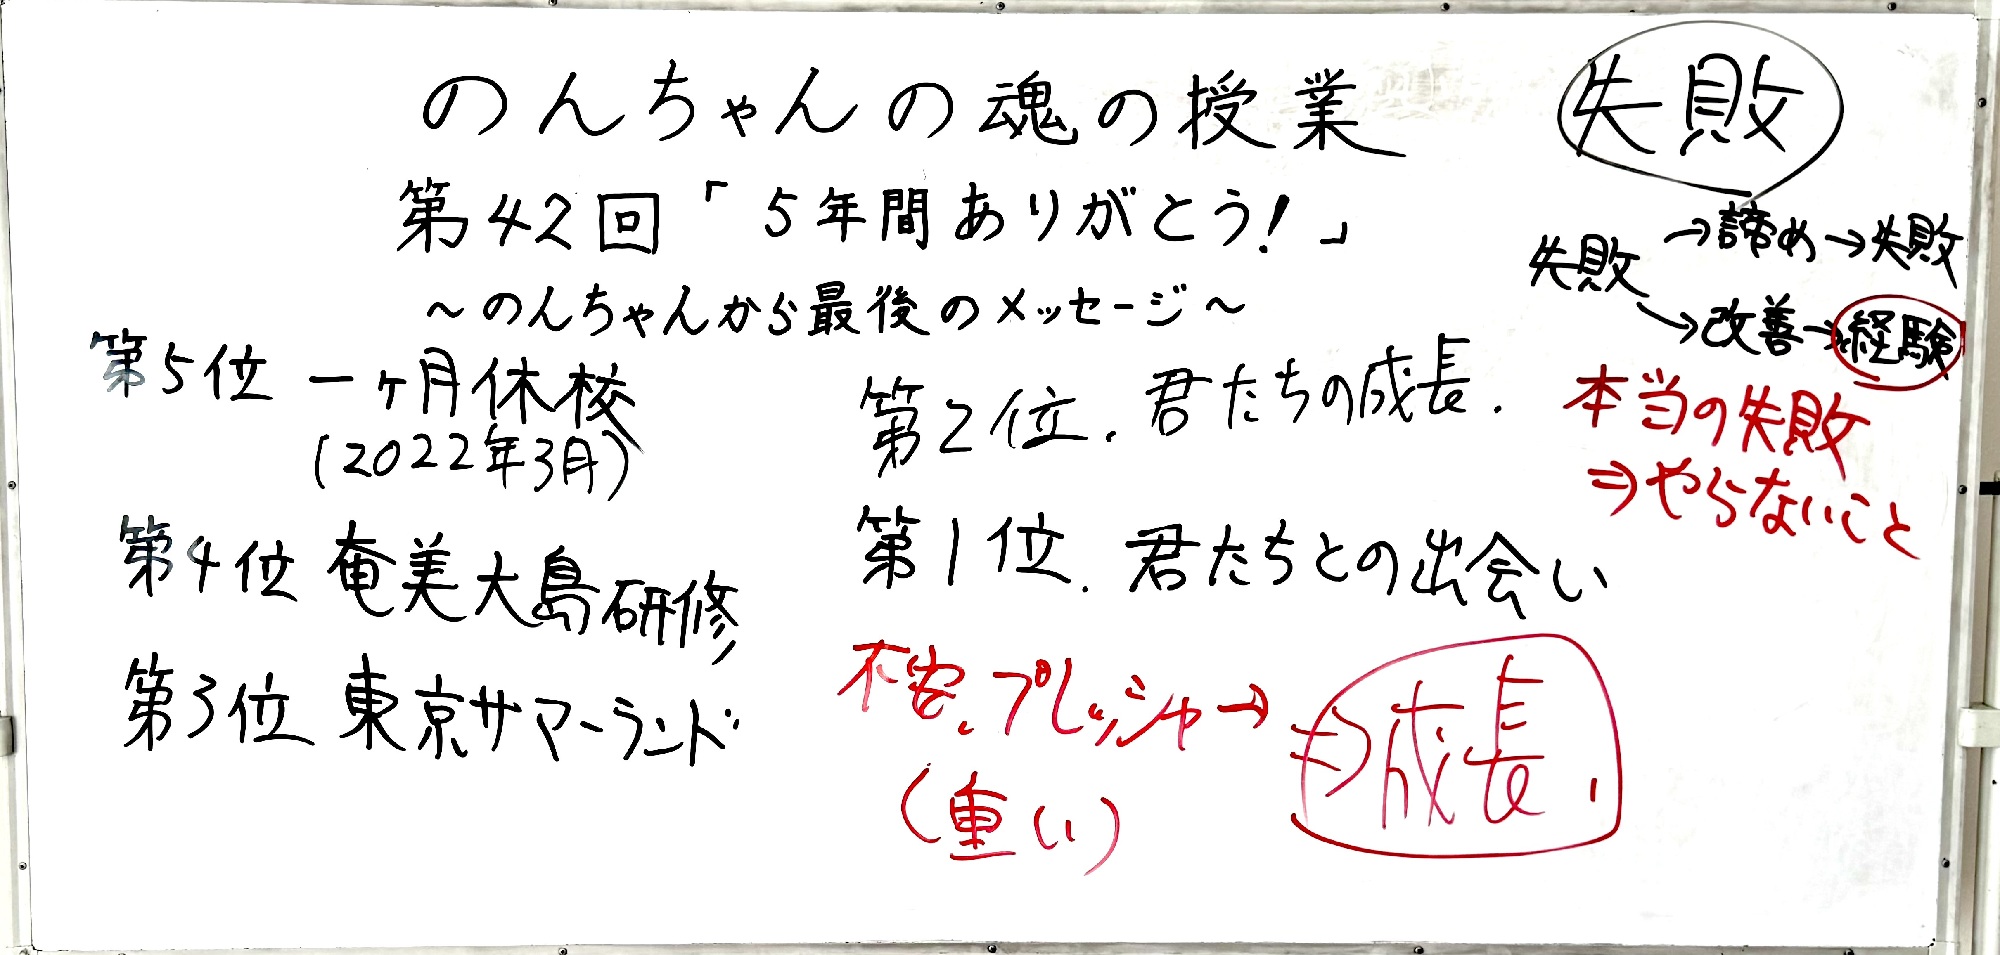 のんちゃんの魂の授業
第42回「5年間ありがとう!」
~のんちゃんから最後のメッセージ~
第5位 一ヶ月休校
(2022年3月)
第4位 奄美大島研修
第3位 東京サマーランド
第2位.君たちの成長.
第1位.君たちとの出会い
不安、プレッシャー→
(重い)
⇒成長.
失敗
失敗
→諦め→失敗
→改善→経験
本当の失敗
⇒やらないこと